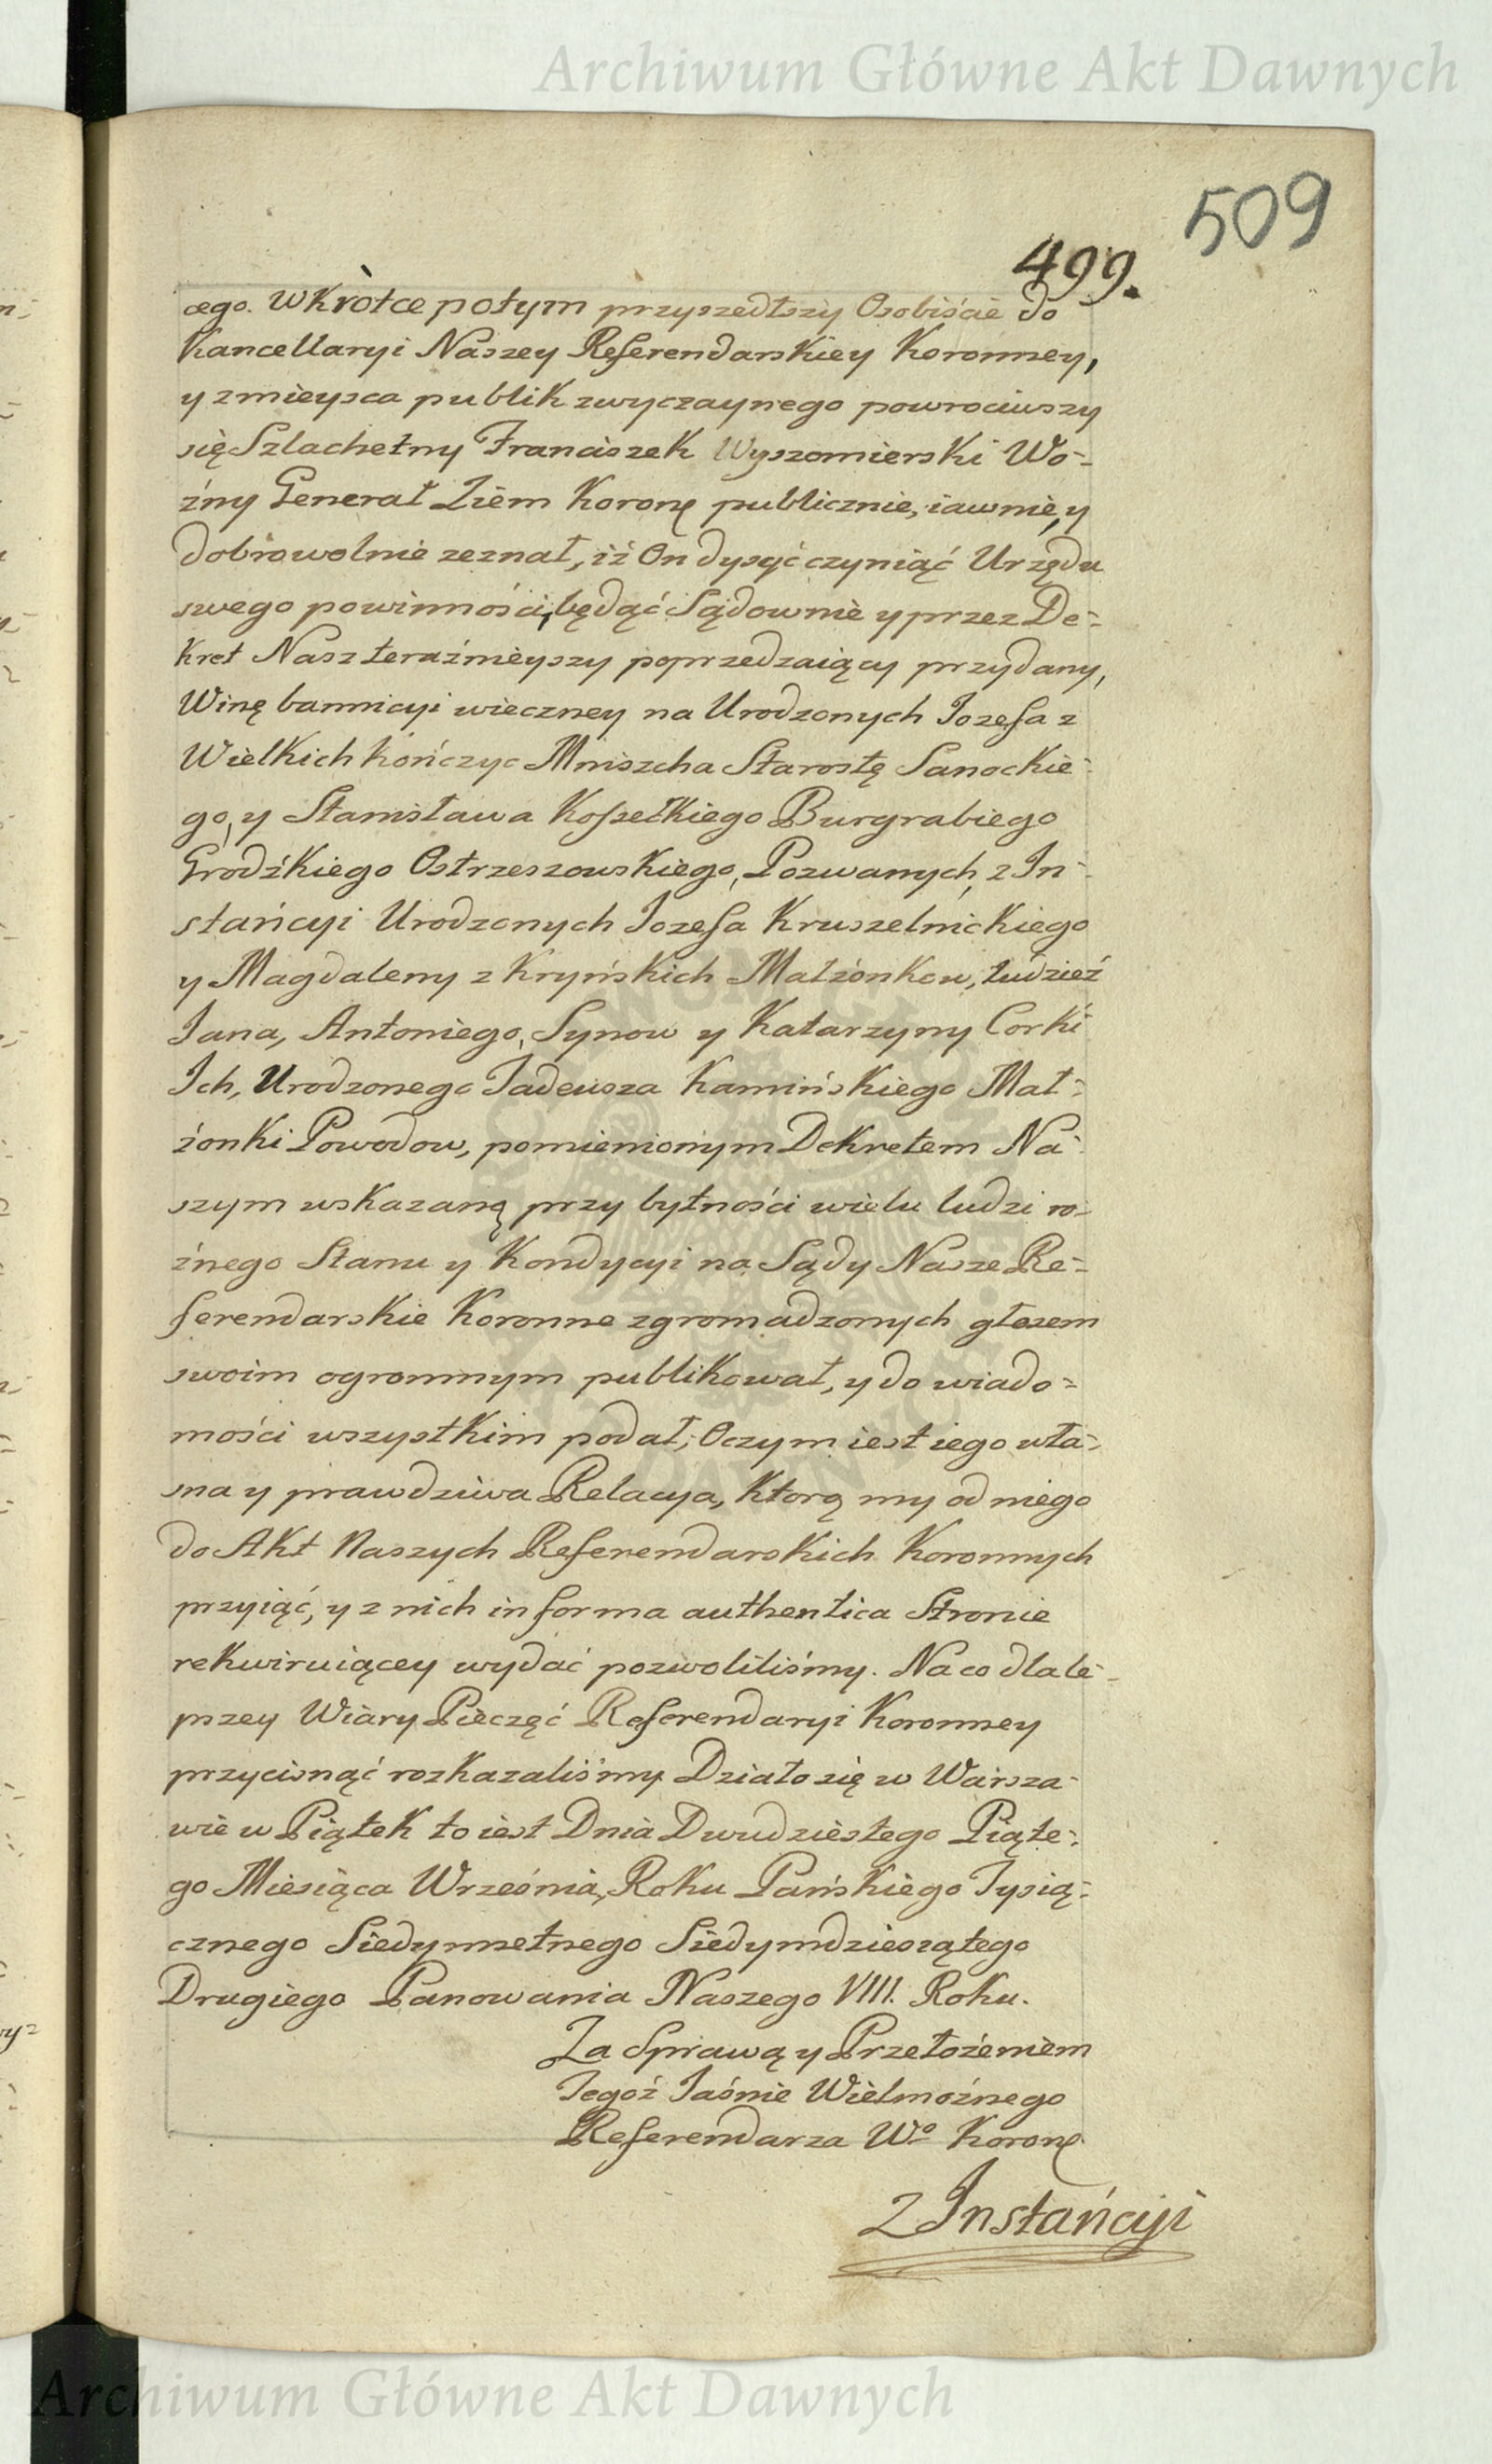 Archiwum Główne Akt Dawnych
509
499.
cego. Wkrotce potym przyszedłszy Osobiście do
Kancellaryi Naszey Referendarskiey Koronney,
y z mieysca publik zwyczaynego powrociwszy
się Szlachetny Franciszek Wyszomierski Wo-
źny Generał Ziem Koronn publicznie, iawnie, y
dobrowolnie zeznał, iż On dysyć czyniąć Urzędu
swego powinności, będąć Sądownie y przez De-
kret Nasz teraźnieyszy poprzedzaiący przydany,
Winę bannicyi wieczney na Urodzonych Jozefa z
Wielkich Kończyc Mniszcha Starostę Sanockie-
go, y Stanisława Koszełkiego Burgrabiego
Grodźkiego Ostrzeszowskiego, Pozwanych, z In-
stańcyi Urodzonych Jozefa Kruszelnickiego
y Magdaleny z Kryńskich Małżonkow, tudzież
Jana, Antoniego, Synow y Katarzyny Corki
Ich, Urodzonego Tadeusza Kamińskiego Mał-
żonki Powodow, pomienionym Dekretem Na-
szym wskazaną przy bytności wielu ludzi ro-
żnego Stanu y Kondycyi na Sądy Nasze Re-
ferendarskie Koronne zgromadzonych głosem
swoim ogromnym publikował, y do wiado-
mości wszystkim podał; Oczym iest iego wła-
sna y prawdziwa Relacya, Ktorą my od niego
do Akt Naszych Referendarskich Koronnych
przyiąć, y z nich in forma authentica Stronie
rekwiruiącey wydać pozwoliliśmy. Na co dla le-
pszey Wiary Pieczęć Referendaryi Koronney
przycisnąć rozkazaliśmy. Działo się w Warsza-
wie w Piątek to iest Dnia Dwudziestego Piąte-
go Miesiąca Września, Roku Pańskiego Tysią-
cznego Siedymsetnego Siedymdziesiątego
Drugiego Panowania Naszego VIII. Roku.
Za Sprawą y Przełożeniem
Tegoż Jaśnie Wielmożnego
Referendarza Wo Koronn
Z Instańcyi
Archiwum Główne Akt Dawnych